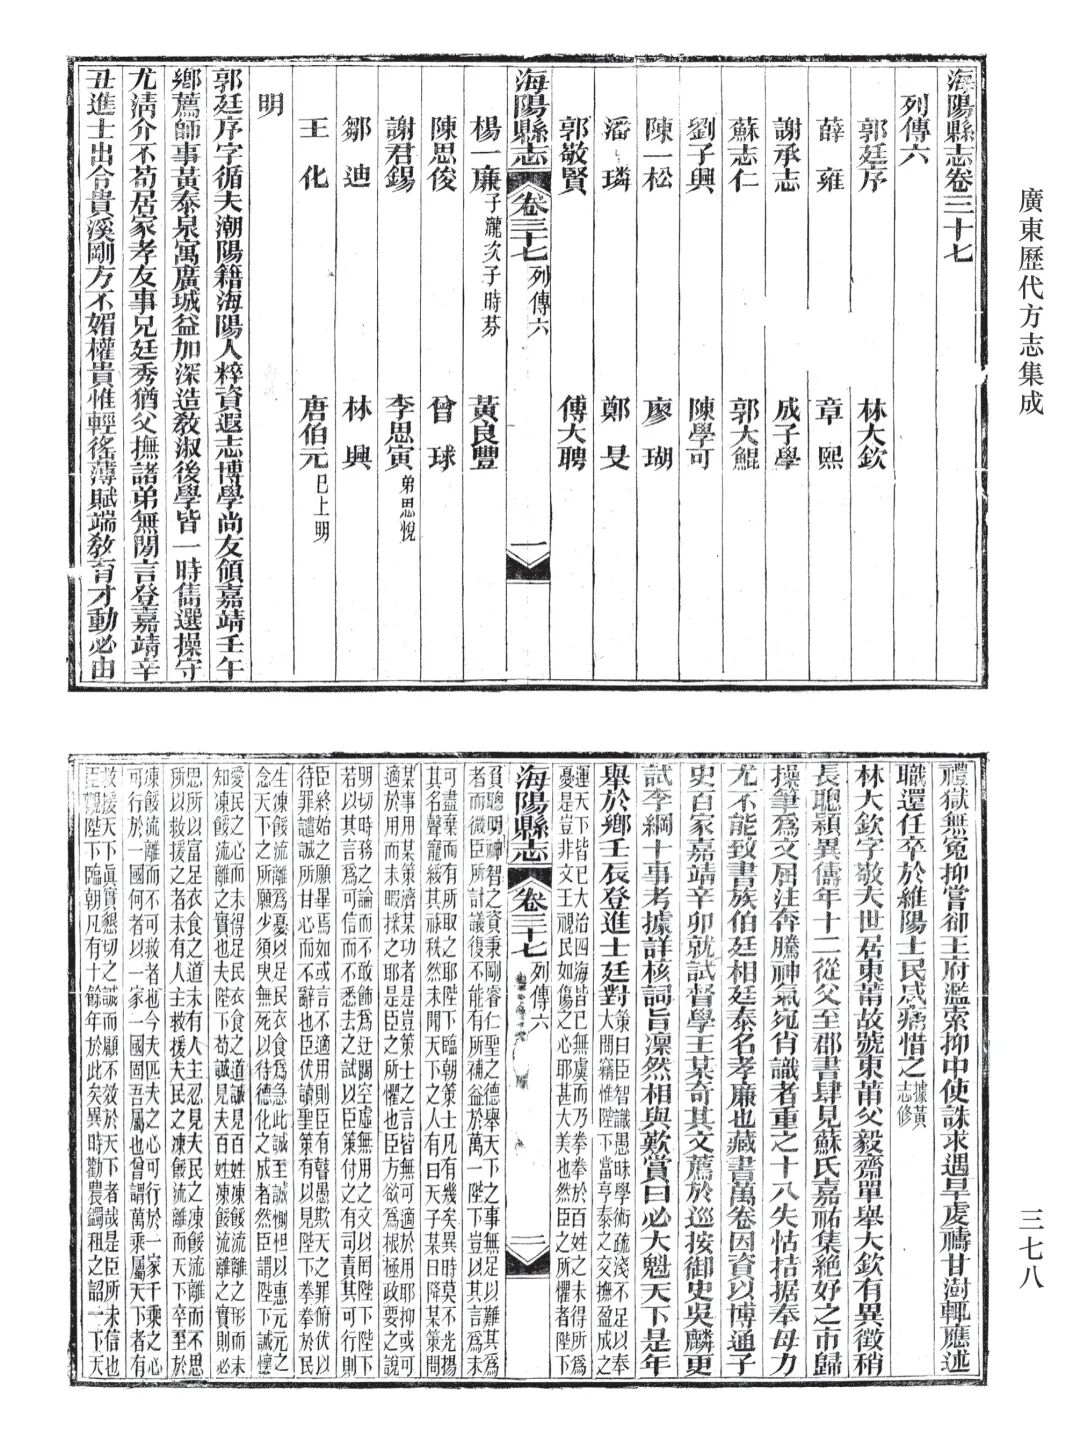 廣東歷代方志集成
三七八
海陽縣志卷三十七
列傳六
郭廷序 林大欽
薛雍 章熙
謝承志 成子學
蘇志仁 郭大鯤
劉子興 陳學可
陳一松 廖瑚
潘璘 鄭旻
郭敬賢 傅大聘
海陽縣志 卷三十七 列傳六 一
楊一廉子瀧次子時芬 黃良豐
陳思俊 曾球
謝君錫 李思寅弟思悅
鄒迪 林興
王化 唐伯元已上明
明
郭廷序字循夫潮陽籍海陽人粹資遐志博學尚友領嘉靖壬午
鄉薦師事黃泰泉寓廣城益加深造敎淑後學皆一時雋選操守
尤淸介不苟居家孝友事兄廷秀猶父撫諸弟無閒言登嘉靖辛
丑進士出令貴溪剛方不媚權貴惟輕徭薄賦端敎育才動必由
禮獄無冤抑嘗卻王府濫索抑中使誅求遇旱虔禱甘澍輒應述
職還任卒於維陽士民咸痛惜之據黃志修
林大欽字敬夫世居東莆故號東莆父毅齋單舉大欽有異徵稍
長聰穎異儔年十二從父至郡書肆見蘇氏嘉祐集絕好之市歸
操筆爲文屈注奔騰神氣宛肖識者重之十八失怙拮据奉母力
尤不能致書族伯廷相廷泰名孝廉也藏書萬卷因資以博通子
史百家嘉靖辛卯就試督學王某奇其文薦於巡按御史吳麟更
試李綱十事考據詳核詞旨凜然相與歎賞曰必大魁天下是年
舉於鄉壬辰登進士廷對策曰臣智識愚昧學術疏淺不足以奉
大問竊惟陛下當亨泰之交撫盈成之
運天下皆已大治四海皆已無虞而乃拳拳於百姓之未得所爲
憂是豈非文王視民如傷之心耶甚大美也然臣之所懼者陛下
海陽縣志 卷三十七 列傳六 二
負聰明神智之資秉剛睿仁聖之德舉天下之事無足以難其爲
者而微臣所計議復不能有所補益於萬一陛下豈以其言爲未
可盡棄而有所取之耶陛下臨朝策士凡有幾矣異時莫不光揚
其名聲寵綏其祿秩然未聞天下之人有曰天子某日降某策問
某事用某策濟某功者是豈策士之言皆無可適於用耶抑或可
適於用而未暇採之耶是臣之所懼也臣方欲爲根極政要之說
明切時務之論而不敢飾爲迂闊空虛無用之文以罔陛下陛下
若以其言爲可信而不悉去之試以臣策付之有司責其可行則
臣終始之願畢焉如或言不適用則臣有瞽愚欺天之罪俯伏以
待罪譴誠所甘心而不辭也臣伏讀聖策有以見陛下拳拳於民
生凍餒流離爲憂以足民衣食爲急此誠至誠惻怛以惠元元之
念天下之所願少須臾無死以待德化之成者然臣謂陛下誠懷
愛民之心而未得足民衣食之道誠見百姓凍餒流離之形而未
知凍餒流離之實也夫陛下苟誠見夫百姓凍餒流離之實則必
思所以富足衣食之道未有人主忍見夫民之凍餒流離而不思
所以救援之者未有人主救援夫民之凍餒流離而天下卒至於
凍餒流離而不可救者也今夫匹夫之心可行於一家千乘之心
可行於一國何者以一家一國固吾屬也曾謂萬乘屬天下者有
救援天下眞實懇切之誠而顧不效於天下者哉是臣所未信也
臣觀陛下臨朝凡有十餘年於此矣異時勸農蠲租之詔一下天